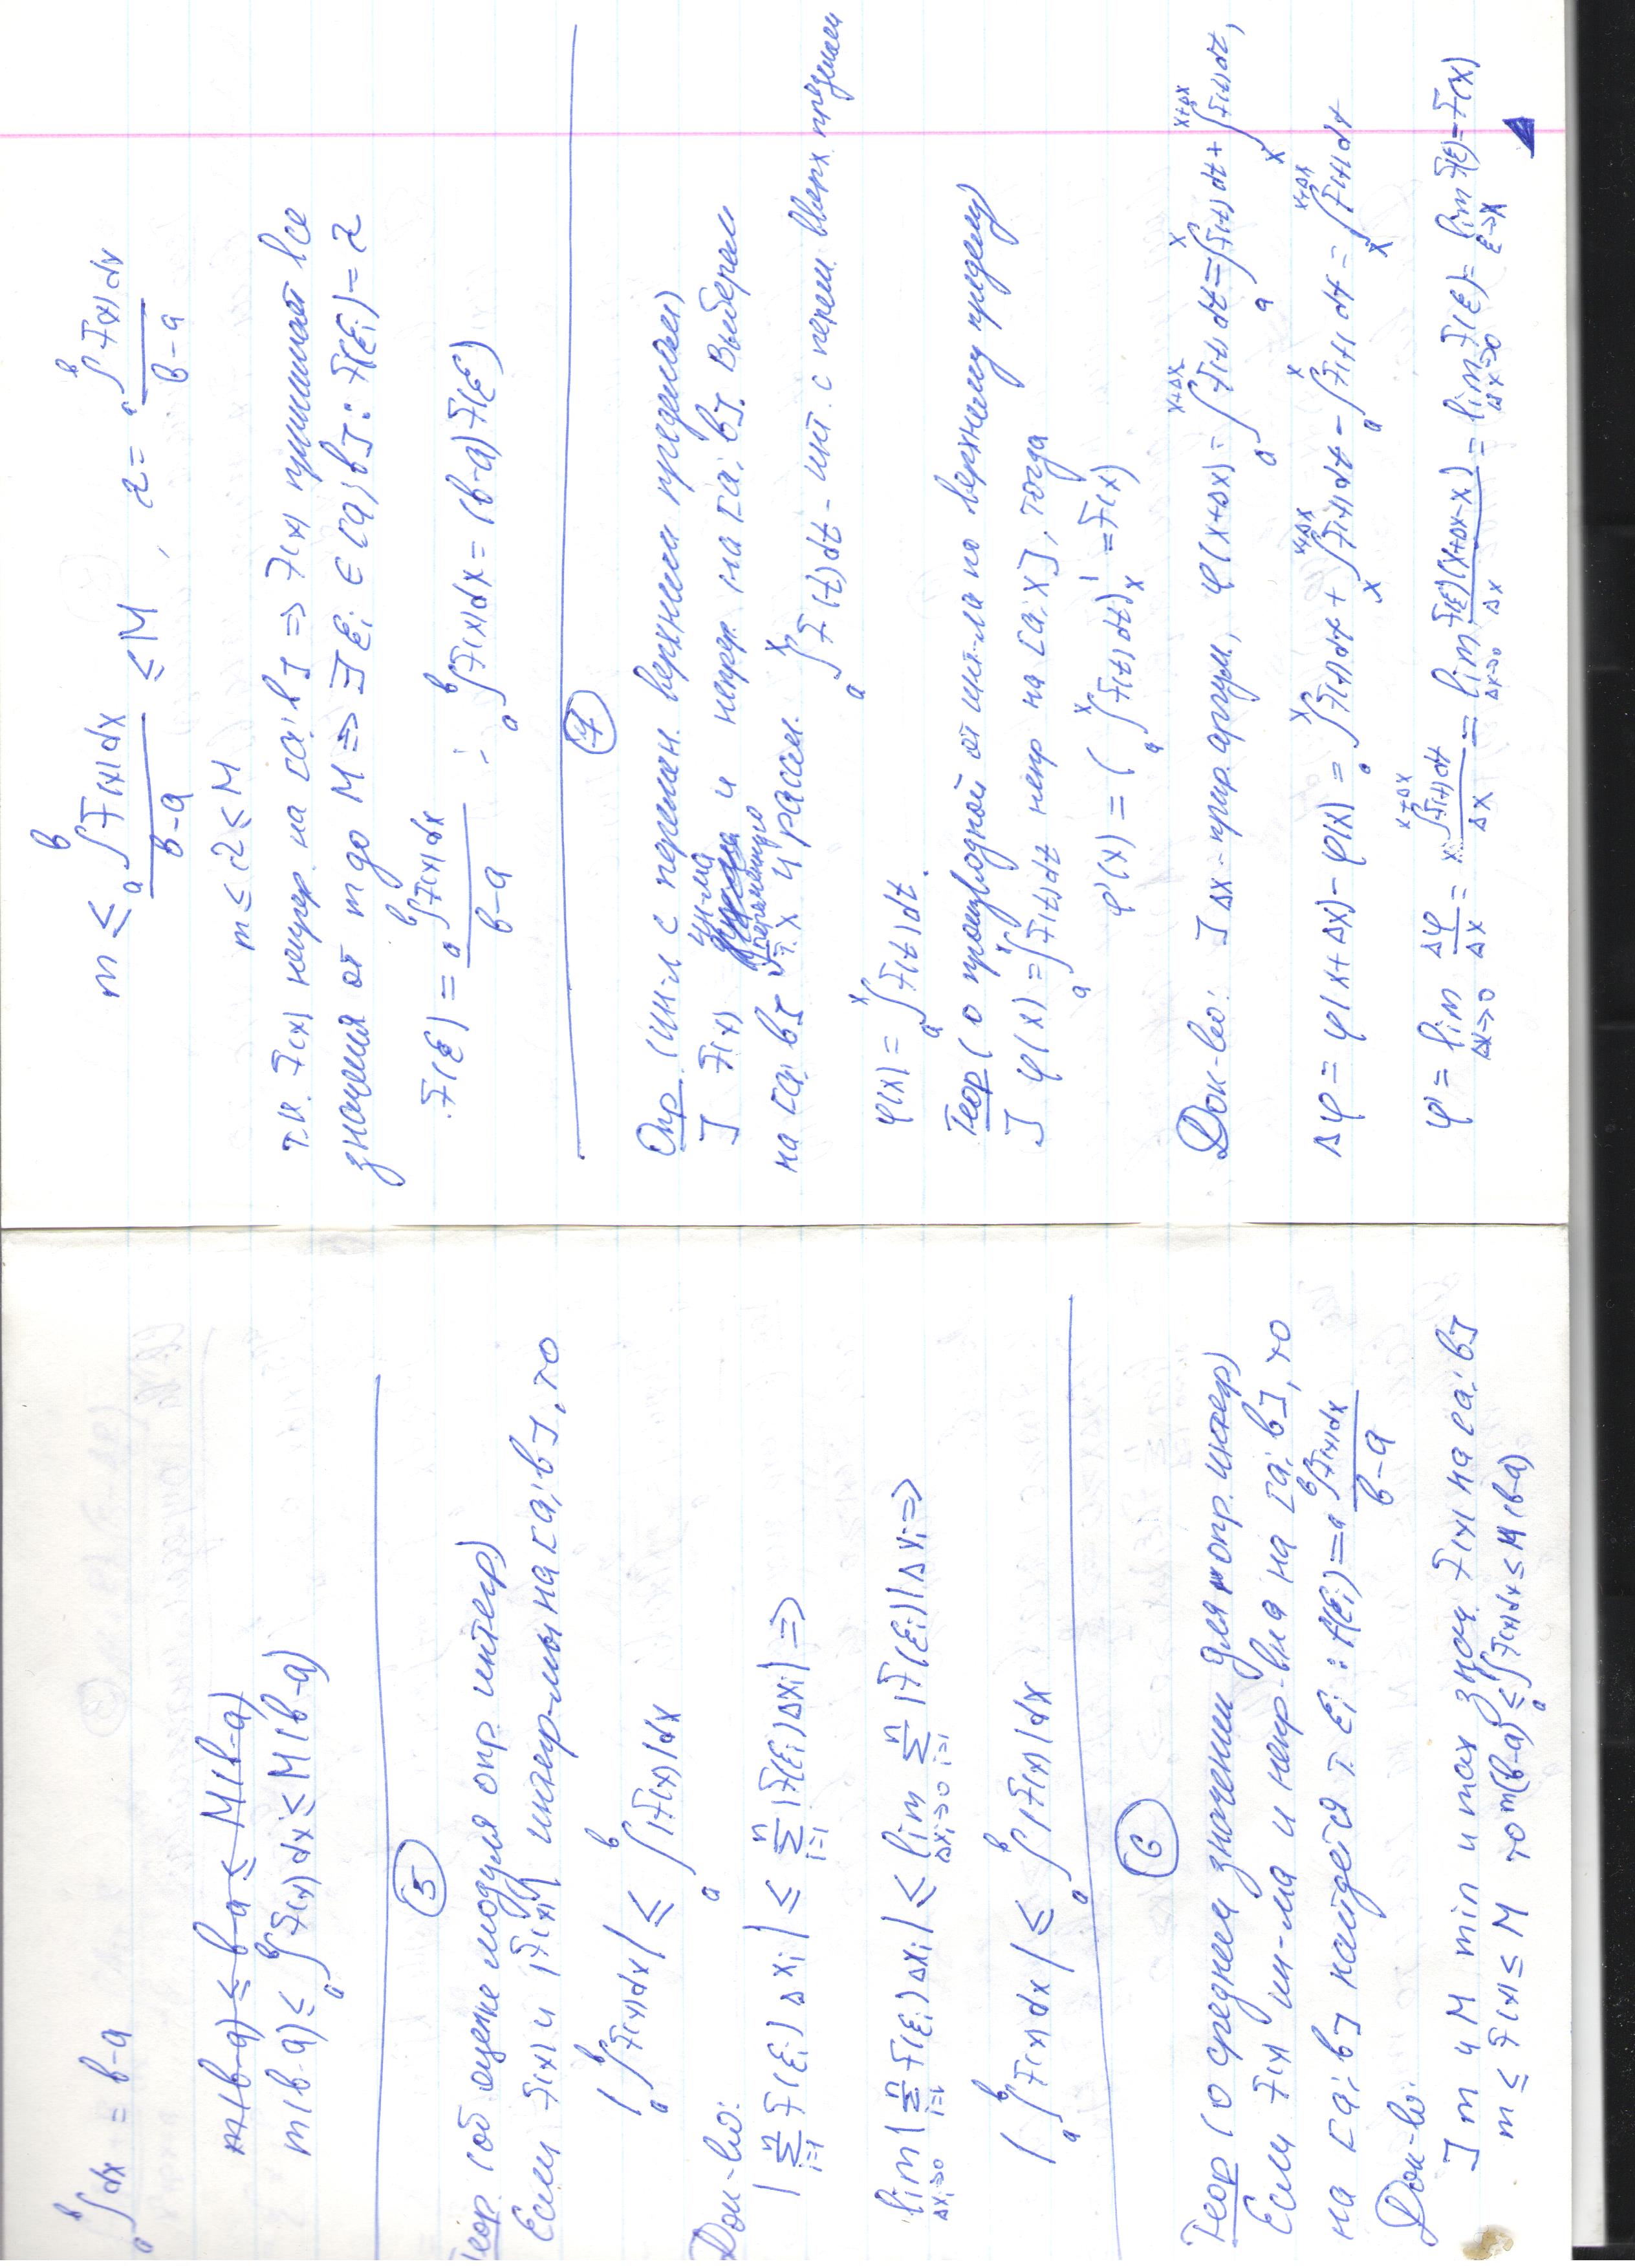 a∫ᵇ dx = b-a
m(b-a) ≤ b-a ≤ M(b-a)
m(b-a) ≤ a∫ᵇ f(x)dx ≤ M(b-a)
⑤
Теор. (об оценке модуля опр. интегр)
Если f(x) и |f(x)| интегр-мы на [a; b], то
|a∫ᵇ f(x)dx| ≤ a∫ᵇ |f(x)|dx
Док-во:
|ⁿΣᵢ₌₁ f(ξᵢ)Δxᵢ| ≤ ⁿΣᵢ₌₁ |f(ξᵢ)Δxᵢ| =>
lim Δxᵢ→0 |ⁿΣᵢ₌₁ f(ξᵢ)Δxᵢ| ≤ lim Δxᵢ→0 ⁿΣᵢ₌₁ |f(ξᵢ)|Δxᵢ =>
|a∫ᵇ f(x)dx| ≤ a∫ᵇ |f(x)|dx
⑥
Теор (о среднем значении для опр. интегр)
Если f(x) ин-ма и непр-вна на [a; b], то
на [a; b] найдётся т. ξᵢ : f(ξᵢ) = a∫ᵇ f(x)dx / b-a
Док-во:
] m и M min и max знач. f(x) на [a; b]
m ≤ f(x) ≤ M то m(b-a) ≤ a∫ᵇ f(x)dx ≤ M(b-a)
m ≤ a∫ᵇ f(x)dx / b-a ≤ M , 2 = a∫ᵇ f(x)dx / b-a
m ≤ 2 ≤ M
т.к. f(x) непрер. на [a; b] => f(x) принимает все
значения от m до M => ∃ ξᵢ ∈ [a; b] : f(ξᵢ) = 2
f(ξ) = a∫ᵇ f(x)dx / b-a ; a∫ᵇ f(x)dx = (b-a) f(ξ)
⑦
Опр. (ин-л с перемен. верхним пределом)
] f(x) ин-ма и непрер. на [a; b]. Выберем
на [a; b] переменную т. x и рассм. a∫ˣ f(t)dt - инт. с перем. вверх. пределом
φ(x) = a∫ˣ f(t)dt.
Теор (о производной от инт-ла по верхнему пределу)
] φ(x) = a∫ˣ f(t)dt непр на [a; x], тогда
φ'(x) = (a∫ˣ f(t)dt)'ₓ = f(x)
Док-во: ] Δx - прир. аргум, φ(x+Δx) = a∫ˣ⁺ᐞˣ f(t)dt = a∫ˣ f(t)dt + x∫ˣ⁺ᐞˣ f(t)dt,
Δφ = φ(x+Δx) - φ(x) = a∫ˣ f(t)dt + x∫ˣ⁺ᐞˣ f(t)dt - a∫ˣ f(t)dt = x∫ˣ⁺ᐞˣ f(t)dt
φ' = lim Δx→0 Δφ/Δx = x∫ˣ⁺ᐞˣ f(t)dt / Δx = lim Δx→0 f(ξ)(x+Δx-x) / Δx = lim Δx→0 f(ξ) = lim ξ→x f(ξ) = f(x)